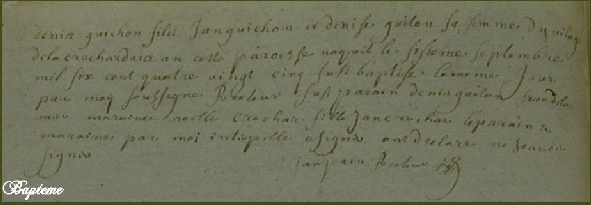 denis guichon fils Jan guichon et denise guiton sa femme du vilage
de la crochardaie an cette paroesse naquit le sisieme septembre
mil six cent quatre vingt cinq fust baptise le mesme Jour
par moy soussigne Recteur fust parain denis guiton
maraine noelle crochar fille Jan crochar le parain &
maraine par moi interpelle a signe ont declare ne scavoir
signe
Recteur
Bapteme